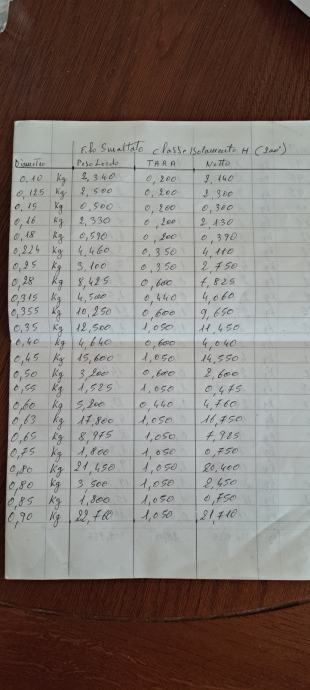 Filo Smaltato classe Isolamento H (200°)
Diametro Peso Lordo TARA Netto
0,10 Kg 2,340 0,200 2,140
0,125 Kg 2,500 0,200 2,300
0,15 Kg 0,500 0,200 0,300
0,16 Kg 2,330 0,200 2,130
0,18 Kg 0,590 0,200 0,390
0,224 Kg 4,460 0,350 4,110
0,25 Kg 3,100 0,350 2,750
0,28 Kg 8,425 0,600 7,825
0,315 Kg 4,500 0,440 4,060
0,355 Kg 10,250 0,600 9,650
0,35 Kg 12,500 1,050 11,450
0,40 Kg 4,640 0,600 4,040
0,45 Kg 15,600 1,050 14,550
0,50 Kg 3,200 0,600 2,600
0,55 Kg 1,525 1,050 0,475
0,60 Kg 5,200 0,440 4,760
0,63 Kg 17,800 1,050 16,750
0,65 Kg 8,975 1,050 7,925
0,75 Kg 1,800 1,050 0,750
0,80 Kg 21,450 1,050 20,400
0,80 Kg 3,500 1,050 2,450
0,85 Kg 1,800 1,050 0,750
0,90 Kg 22,760 1,050 21,710